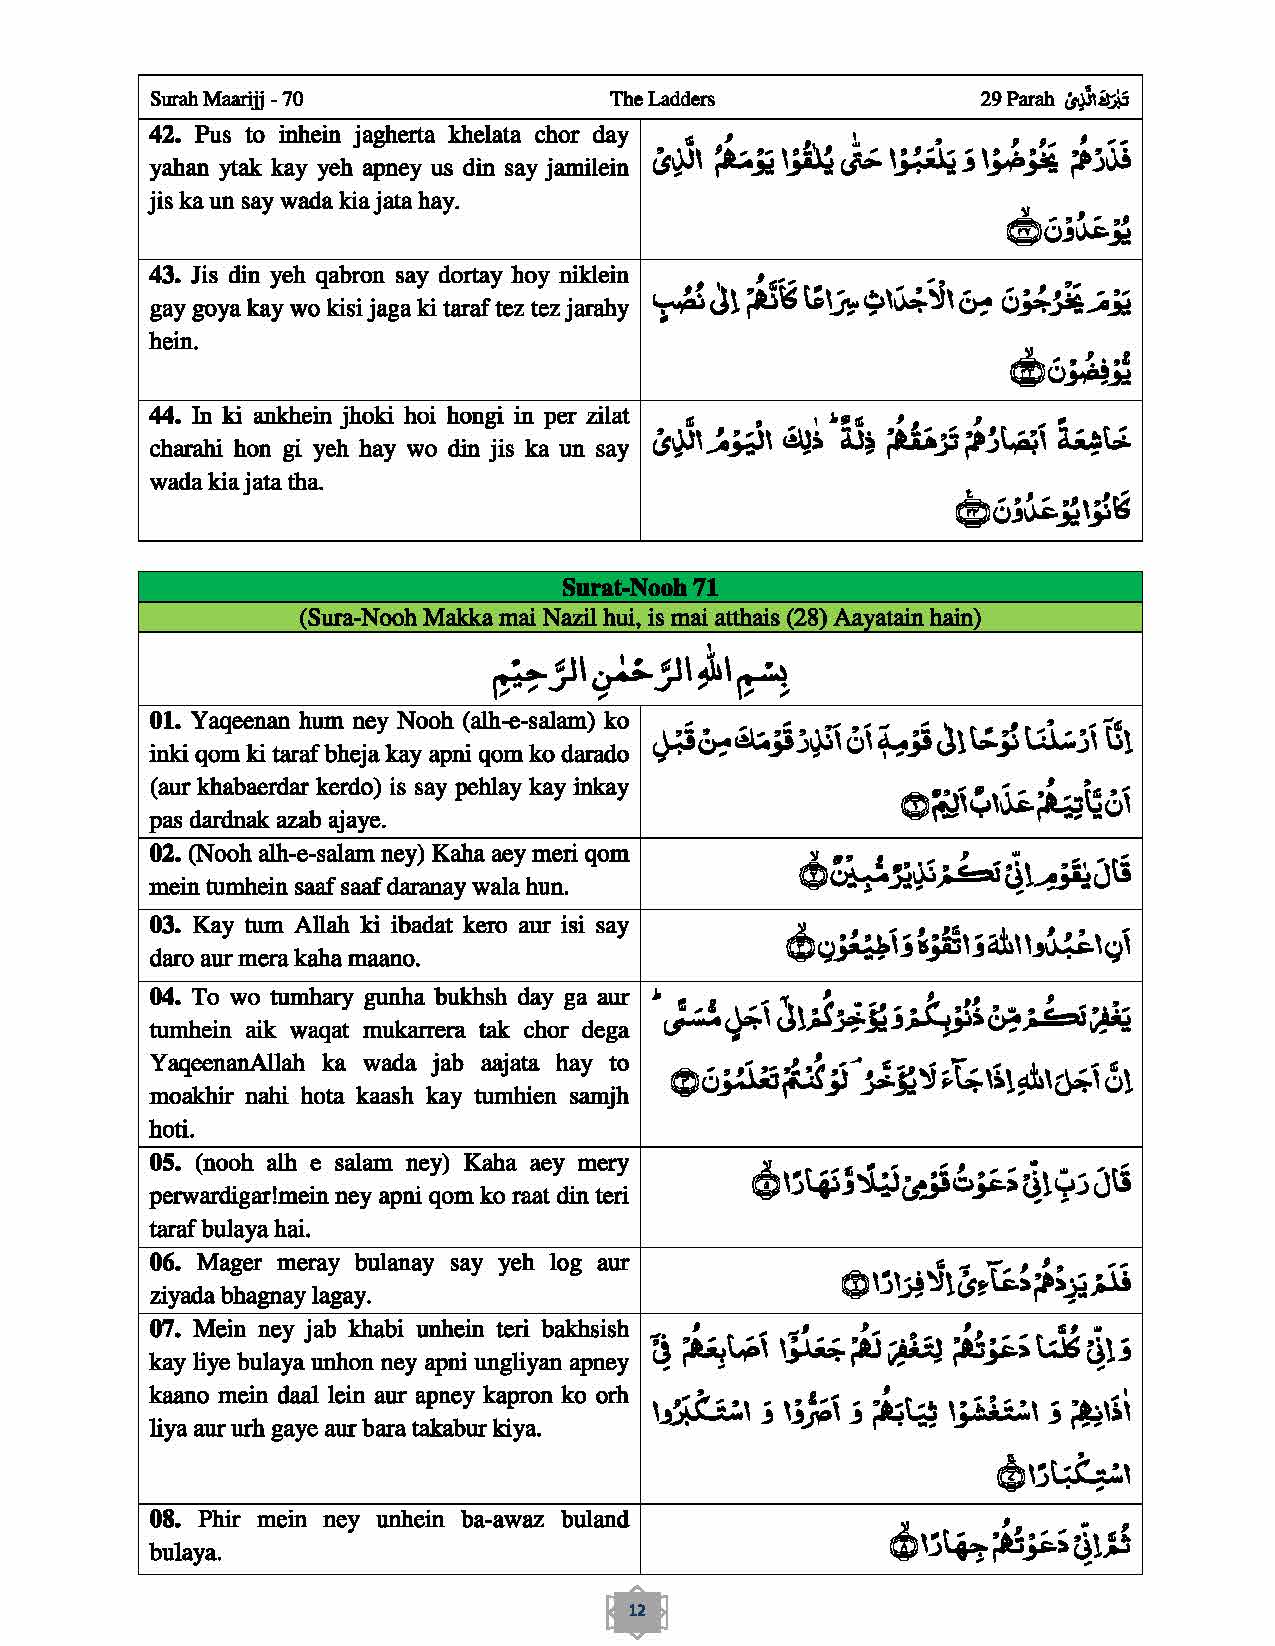 Surah Maarijj - 70 The Ladders 29 Parah تَبٰرَكَ الَّذِیْ
42. Pus to inhein jagherta khelata chor day
yahan ytak kay yeh apney us din say jamilein
jis ka un say wada kia jata hay.
فَذَرْهُمْ یَخُوْضُوْا وَ یَلْعَبُوْا حَتّٰی یُلٰقُوْا یَوْمَهُمُ الَّذِیْ
یُوْعَدُوْنَ ۙ﴿۴۲﴾
43. Jis din yeh qabron say dortay hoy niklein
gay goya kay wo kisi jaga ki taraf tez tez jarahy
hein.
یَوْمَ یَخْرُجُوْنَ مِنَ الْاَجْدَاثِ سِرَاعًا كَاَنَّهُمْ اِلٰی نُصُبٍ
یُّوْفِضُوْنَ ۙ﴿۴۳﴾
44. In ki ankhein jhoki hoi hongi in per zilat
charahi hon gi yeh hay wo din jis ka un say
wada kia jata tha.
خَاشِعَةً اَبْصَارُهُمْ تَرْهَقُهُمْ ذِلَّةٌ ؕ ذٰلِكَ الْیَوْمُ الَّذِیْ
كَانُوْا یُوْعَدُوْنَ ﴿۴۴﴾
Surat-Nooh 71
(Sura-Nooh Makka mai Nazil hui, is mai atthais (28) Aayatain hain)
بِسْمِ اللّٰهِ الرَّحْمٰنِ الرَّحِیْمِ
01. Yaqeenan hum ney Nooh (alh-e-salam) ko
inki qom ki taraf bheja kay apni qom ko darado
(aur khabaerdar kerdo) is say pehlay kay inkay
pas dardnak azab ajaye.
اِنَّاۤ اَرْسَلْنَا نُوْحًا اِلٰی قَوْمِهٖۤ اَنْ اَنْذِرْ قَوْمَكَ مِنْ قَبْلِ
اَنْ یَّاْتِیَهُمْ عَذَابٌ اَلِیْمٌ ﴿۱﴾
02. (Nooh alh-e-salam ney) Kaha aey meri qom
mein tumhein saaf saaf daranay wala hun.
قَالَ یٰقَوْمِ اِنِّیْ لَكُمْ نَذِیْرٌ مُّبِیْنٌ ۙ﴿۲﴾
03. Kay tum Allah ki ibadat kero aur isi say
daro aur mera kaha maano.
اَنِ اعْبُدُوا اللّٰهَ وَ اتَّقُوْهُ وَ اَطِیْعُوْنِ ۙ﴿۳﴾
04. To wo tumhary gunha bukhsh day ga aur
tumhein aik waqat mukarrera tak chor dega
YaqeenanAllah ka wada jab aajata hay to
moakhir nahi hota kaash kay tumhien samjh
hoti.
یَغْفِرْ لَكُمْ مِّنْ ذُنُوْبِكُمْ وَ یُؤَخِّرْكُمْ اِلٰۤی اَجَلٍ مُّسَمًّی ؕ
اِنَّ اَجَلَ اللّٰهِ اِذَا جَآءَ لَا یُؤَخَّرُ ۘ لَوْ كُنْتُمْ تَعْلَمُوْنَ ﴿۴﴾
05. (nooh alh e salam ney) Kaha aey mery
perwardigar!mein ney apni qom ko raat din teri
taraf bulaya hai.
قَالَ رَبِّ اِنِّیْ دَعَوْتُ قَوْمِیْ لَیْلًا وَّ نَهَارًا ۙ﴿۵﴾
06. Mager meray bulanay say yeh log aur
ziyada bhagnay lagay.
فَلَمْ یَزِدْهُمْ دُعَآءِیْۤ اِلَّا فِرَارًا ﴿۶﴾
07. Mein ney jab khabi unhein teri bakhsish
kay liye bulaya unhon ney apni ungliyan apney
kaano mein daal lein aur apney kapron ko orh
liya aur urh gaye aur bara takabur kiya.
وَ اِنِّیْ كُلَّمَا دَعَوْتُهُمْ لِتَغْفِرَ لَهُمْ جَعَلُوْۤا اَصَابِعَهُمْ فِیْۤ
اٰذَانِهِمْ وَ اسْتَغْشَوْا ثِیَابَهُمْ وَ اَصَرُّوْا وَ اسْتَكْبَرُوا
اسْتِكْبَارًا ۚ﴿۷﴾
08. Phir mein ney unhein ba-awaz buland
bulaya.
ثُمَّ اِنِّیْ دَعَوْتُهُمْ جِهَارًا ۙ﴿۸﴾
12